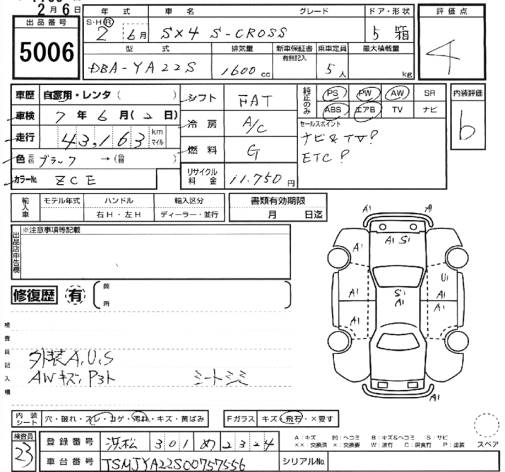 2月6日
出品番号 5006
年式 車名 グレード ドア・形状
S・H・R 2年6月 SX4 S-CROSS 5 箱
型式 排気量 新車保証書 有無記入 乗車定員 最大積載量
DBA-YA22S 1600cc 5人 kg
評価点 4
車歴 自家用・レンタ( )
車検 7年6月(2日)
走行 43,163 km マイル
色 元色 ブラック → (色 )
カラーNo. ZCE
シフト FAT
冷房 A/C
燃料 G
リサイクル料金 11.750円
純正のみ PS PW AW SR
ABS エアB TV ナビ
セールスポイント
ナビ&TV?
ETC?
内装評価 b
輸入車 モデル年式 ハンドル 右H・左H 輸入区分 ディーラー・並行
書類有効期限 月 日迄
出品店申告欄 ※注意事項等記載
修復歴 有 ( 箇所 )
検査員記入欄
外装A,U,S
AWキズ,P3ト
シートシミ
A1 A1
A1 S1
A1 U1
A1 S1
A1 A1
A1
A1
内装シート 穴・破れ・スレ・コゲ・汚れ・キズ・黄ばみ
Fガラス キズ・飛石・×要す
検査員 23
登録番号 浜松 301 め 2324
車台番号 TSMJYA22S00757556
シリアルNo.
A:キズ U:ヘコミ B:キズ&ヘコミ S:サビ
スペア